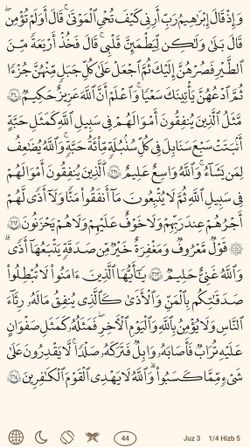 وَإِذْ قَالَ إِبْرَٰهِـۧمُ رَبِّ أَرِنِى كَيْفَ تُحْىِ ٱلْمَوْتَىٰ ۖ قَالَ أَوَلَمْ تُؤْمِن ۖ
قَالَ بَلَىٰ وَلَٰكِن لِّيَطْمَئِنَّ قَلْبِى ۖ قَالَ فَخُذْ أَرْبَعَةً مِّنَ
ٱلطَّيْرِ فَصُرْهُنَّ إِلَيْكَ ثُمَّ ٱجْعَلْ عَلَىٰ كُلِّ جَبَلٍ مِّنْهُنَّ جُزْءًا
ثُمَّ ٱدْعُهُنَّ يَأْتِينَكَ سَعْيًا ۚ وَٱعْلَمْ أَنَّ ٱللَّهَ عَزِيزٌ حَكِيمٌ ٢٦٠
مَّثَلُ ٱلَّذِينَ يُنفِقُونَ أَمْوَٰلَهُمْ فِى سَبِيلِ ٱللَّهِ كَمَثَلِ حَبَّةٍ
أَنۢبَتَتْ سَبْعَ سَنَابِلَ فِى كُلِّ سُنۢبُلَةٍ مِّا۟ئَةُ حَبَّةٍ ۗ وَٱللَّهُ يُضَٰعِفُ
لِمَن يَشَآءُ ۗ وَٱللَّهُ وَٰسِعٌ عَلِيمٌ ٢٦١ ٱلَّذِينَ يُنفِقُونَ أَمْوَٰلَهُمْ
فِى سَبِيلِ ٱللَّهِ ثُمَّ لَا يُتْبِعُونَ مَآ أَنفَقُوا۟ مَنًّا وَلَآ أَذًى ۙ لَّهُمْ
أَجْرُهُمْ عِندَ رَبِّهِمْ وَلَا خَوْفٌ عَلَيْهِمْ وَلَا هُمْ يَحْزَنُونَ ٢٦٢
۞ قَوْلٌ مَّعْرُوفٌ وَمَغْفِرَةٌ خَيْرٌ مِّن صَدَقَةٍ يَتْبَعُهَآ أَذًى ۗ
وَٱللَّهُ غَنِىٌّ حَلِيمٌ ٢٦٣ يَٰٓأَيُّهَا ٱلَّذِينَ ءَامَنُوا۟ لَا تُبْطِلُوا۟
صَدَقَٰتِكُم بِٱلْمَنِّ وَٱلْأَذَىٰ كَٱلَّذِى يُنفِقُ مَالَهُۥ رِئَآءَ
ٱلنَّاسِ وَلَا يُؤْمِنُ بِٱللَّهِ وَٱلْيَوْمِ ٱلْءَاخِرِ ۖ فَمَثَلُهُۥ كَمَثَلِ صَفْوَانٍ
عَلَيْهِ تُرَابٌ فَأَصَابَهُۥ وَابِلٌ فَتَرَكَهُۥ صَلْدًا ۖ لَّا يَقْدِرُونَ عَلَىٰ
شَىْءٍ مِّمَّا كَسَبُوا۟ ۗ وَٱللَّهُ لَا يَهْدِى ٱلْقَوْمَ ٱلْكَٰفِرِينَ ٢٦٤
44 Juz 3 1/4 Hizb 5